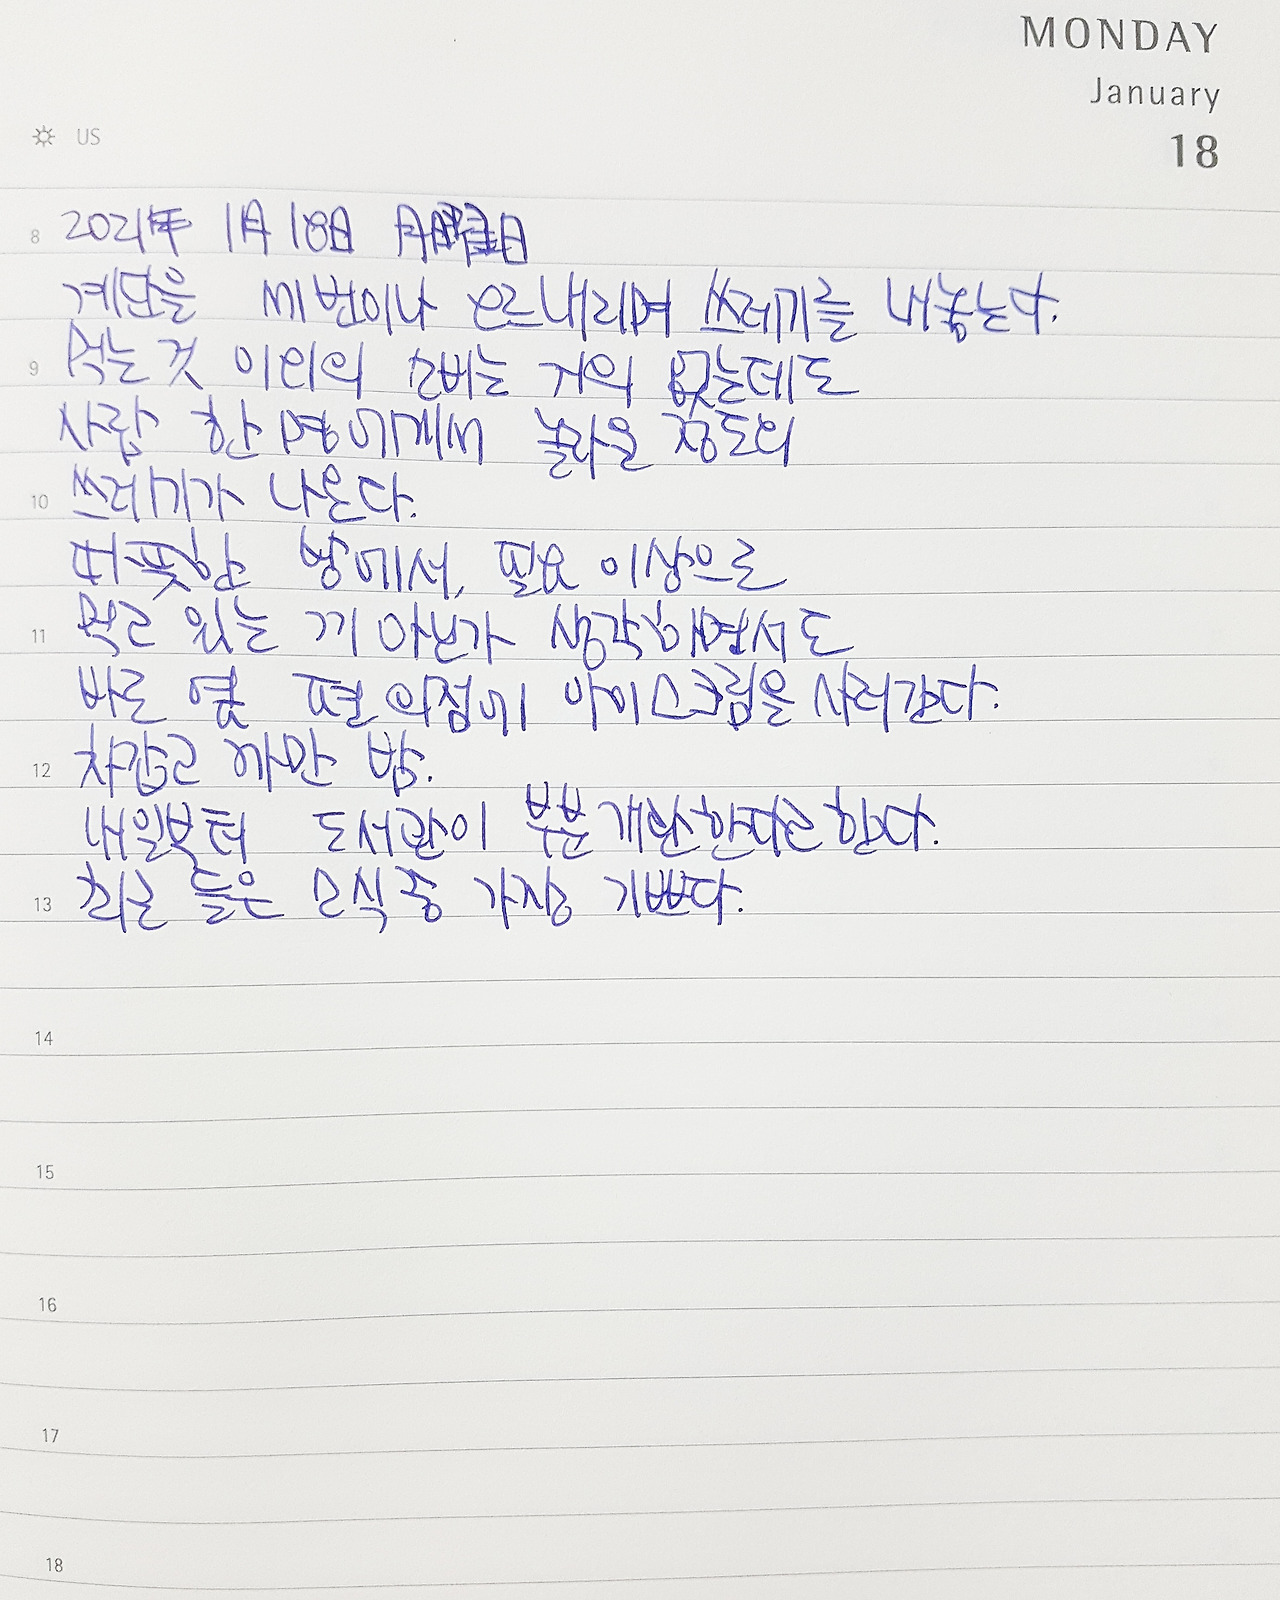 MONDAY
January
18
US
8
2021年 1月 18日 月曜日
계단을 세 번이나 오르내리며 쓰레기를 내놓는다.
9
먹는 것 이외의 소비는 거의 없는데도
사람 한 명에게서 놀라운 정도의
10
쓰레기가 나온다.
따뜻한 방에서, 필요 이상으로
11
먹고 있는 게 아닌가 생각하면서도
바로 옆 편의점에 아이스크림을 사러간다.
12
차갑고 까만 밤.
내일부터 도서관이 부분개관한다고 한다.
13
최근 들은 소식 중 가장 기쁘다.
14
15
16
17
18